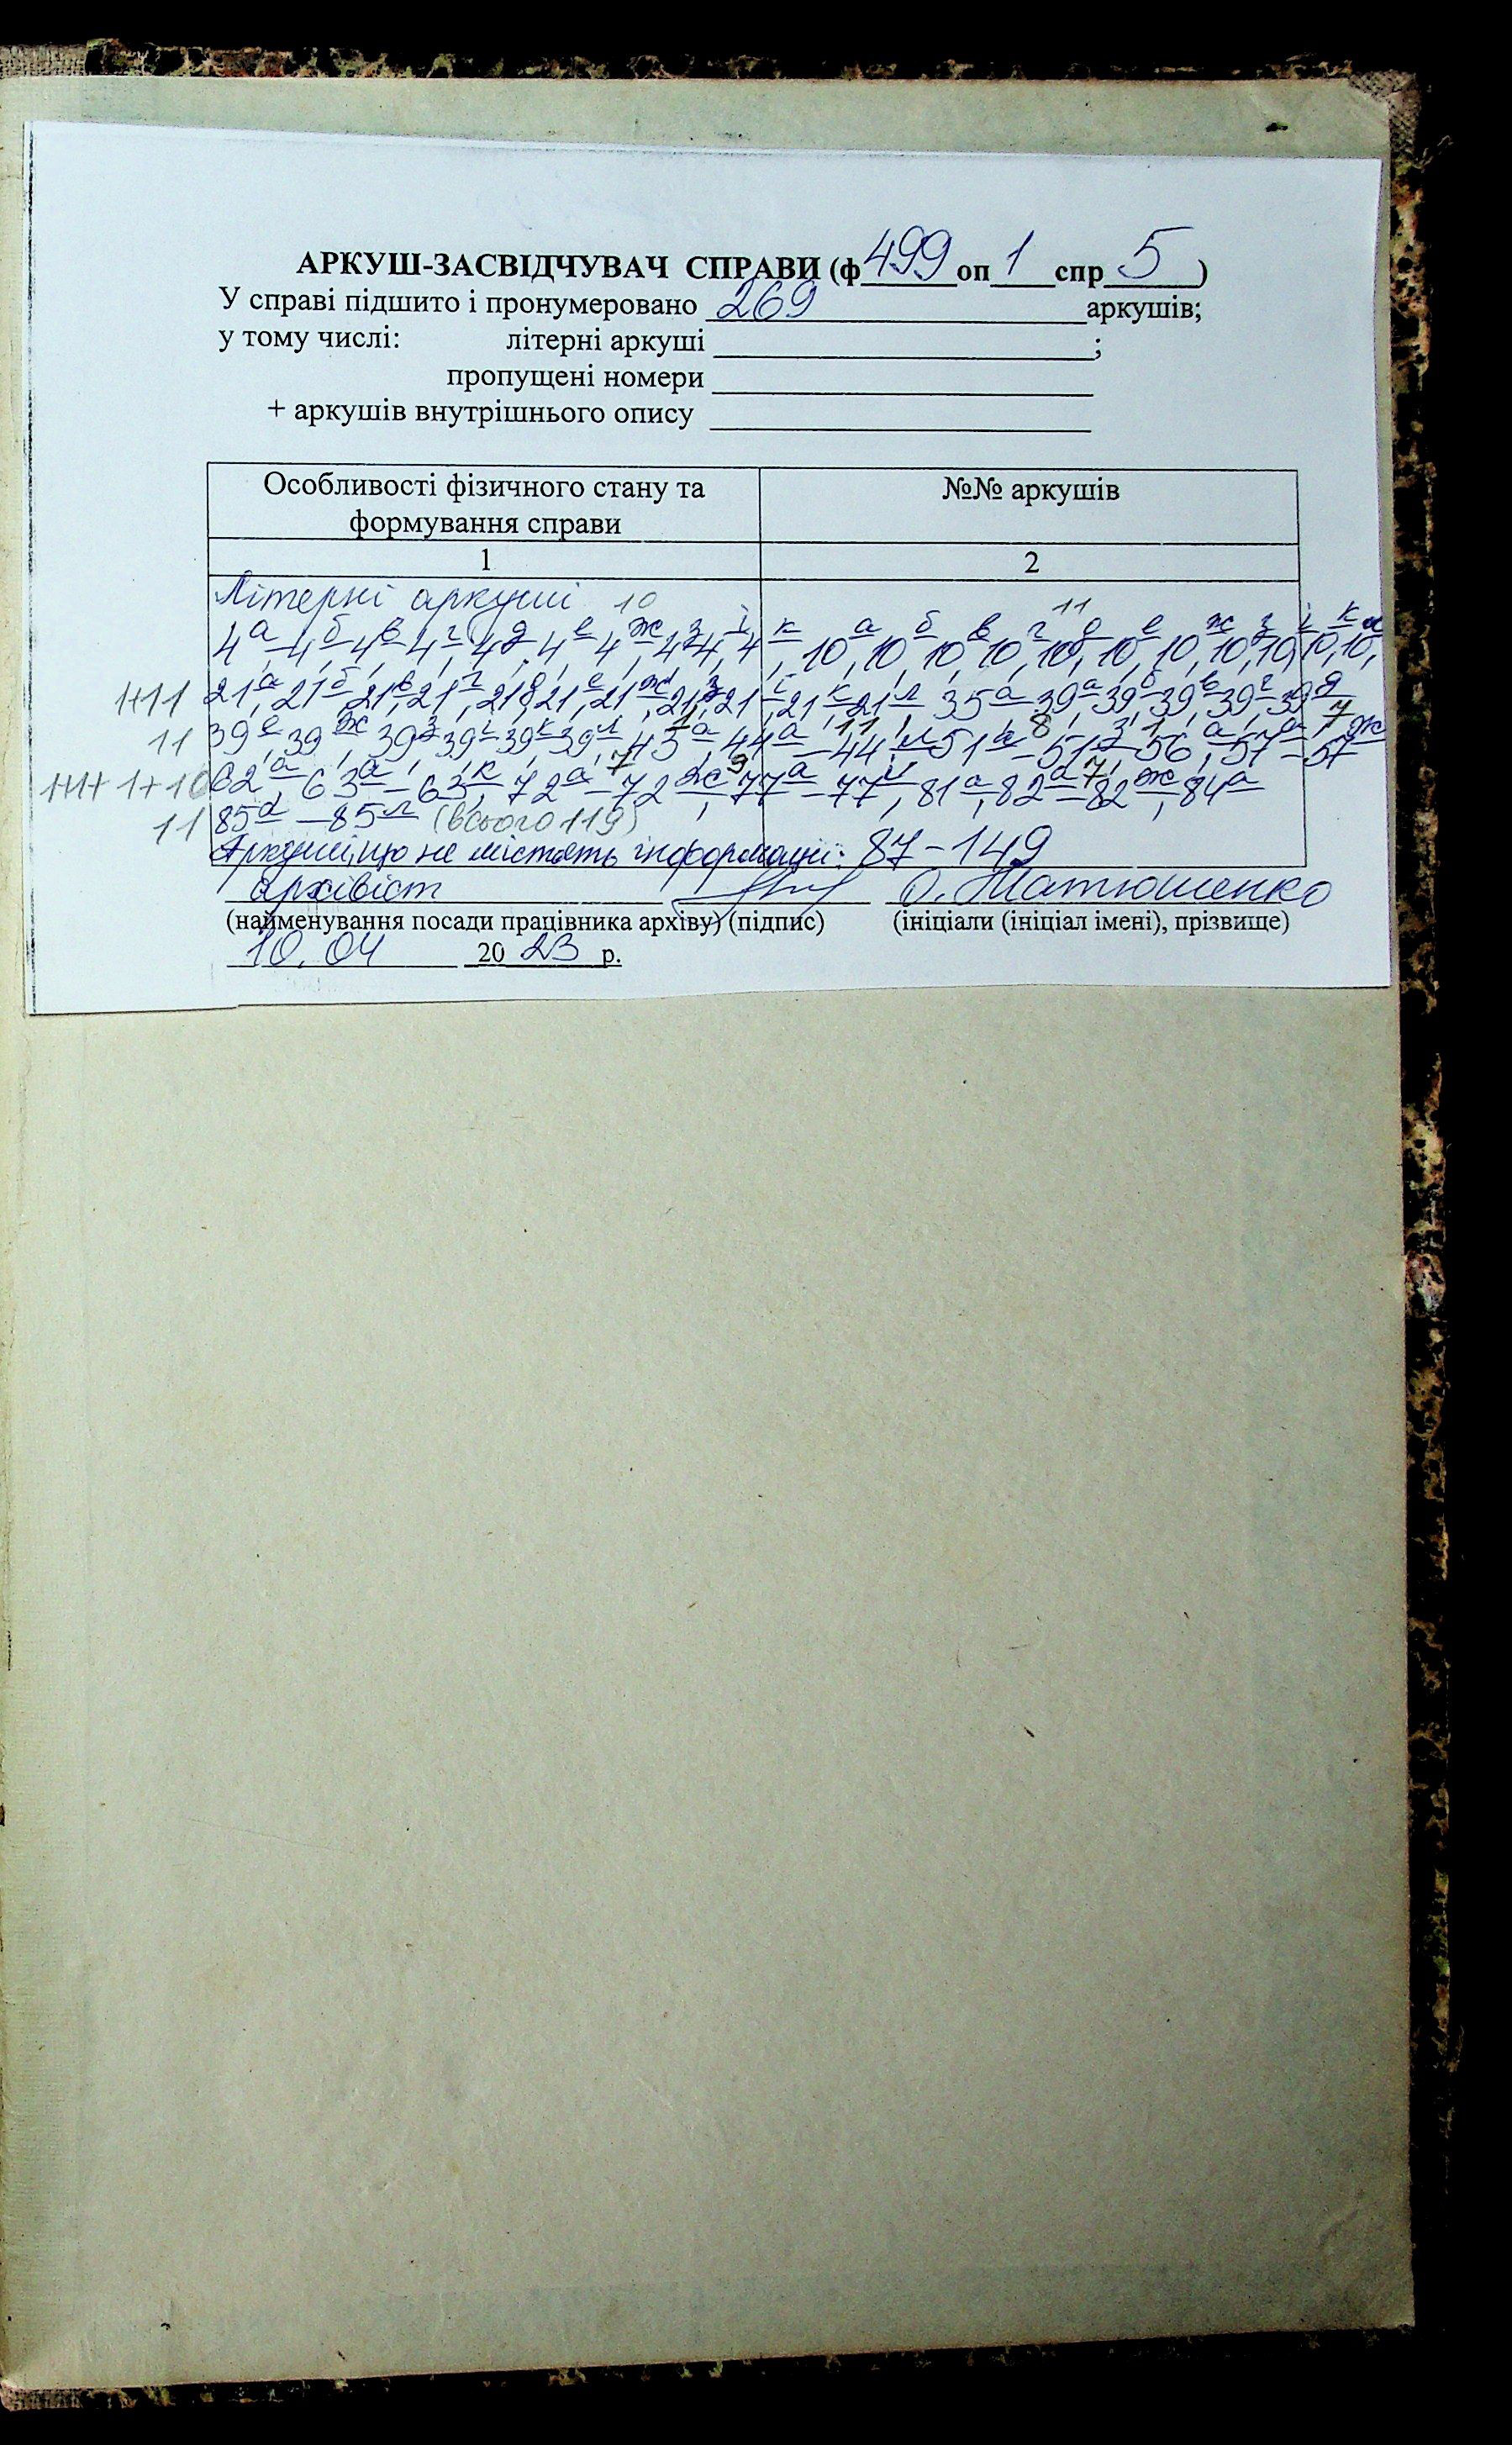 АРКУШ-ЗАСВІДЧУВАЧ СПРАВИ (ф 499 оп 1 спр 5 )
У справі підшито і пронумеровано 269 аркушів;
у тому числі: літерні аркуші ;
пропущені номери
+ аркушів внутрішнього опису
Особливості фізичного стану та формування справи №№ аркушів
1 2
Літерні аркуші 10 11
4а, 4б, 4в, 4г, 4д, 4е, 4ж, 4з, 4і, 4к, 10а, 10б, 10в, 10г, 10д, 10е, 10ж, 10з, 10і, 10к, 10л,
1+11 21а, 21б, 21в, 21г, 21д, 21е, 21ж, 21з, 21і, 21к, 21л, 35а, 39а, 39б, 39в, 39г, 39д
11 39е, 39ж, 39з, 39і, 39к, 39л, 43а, 44а – 44л, 51а – 51з, 56а, 57а – 57ж
1+1+1+10 62а, 63а – 63к, 72а – 72ж, 77а – 77и, 81а, 82а – 82ж, 84а
11 85а – 85л (всього 119)
Аркуші, що не містять інформації: 87 – 149
архівіст О. Матюшенко
(найменування посади працівника архіву) (підпис) (ініціали (ініціал імені), прізвище)
10.04 20 23 р.